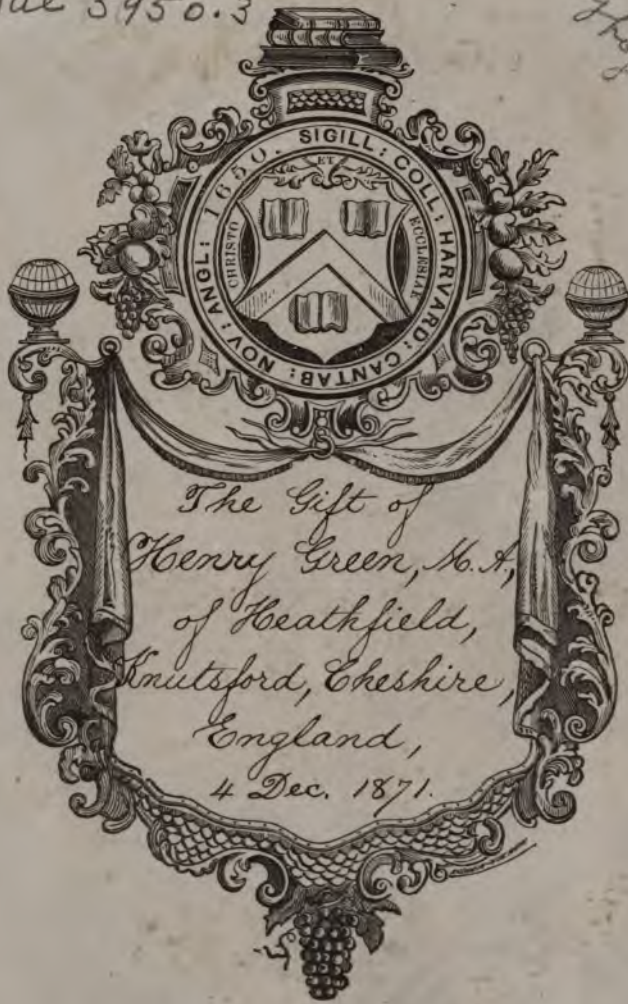 5950.3
SIGILL: COLL: HARVARD: CANTAB: NOV: ANGL: 1650.
ET
CHRISTO
ECCLESIAE
The Gift of
Henry Green, M.A,
of Heathfield,
Knutsford, Cheshire,
England,
4 Dec. 1871.